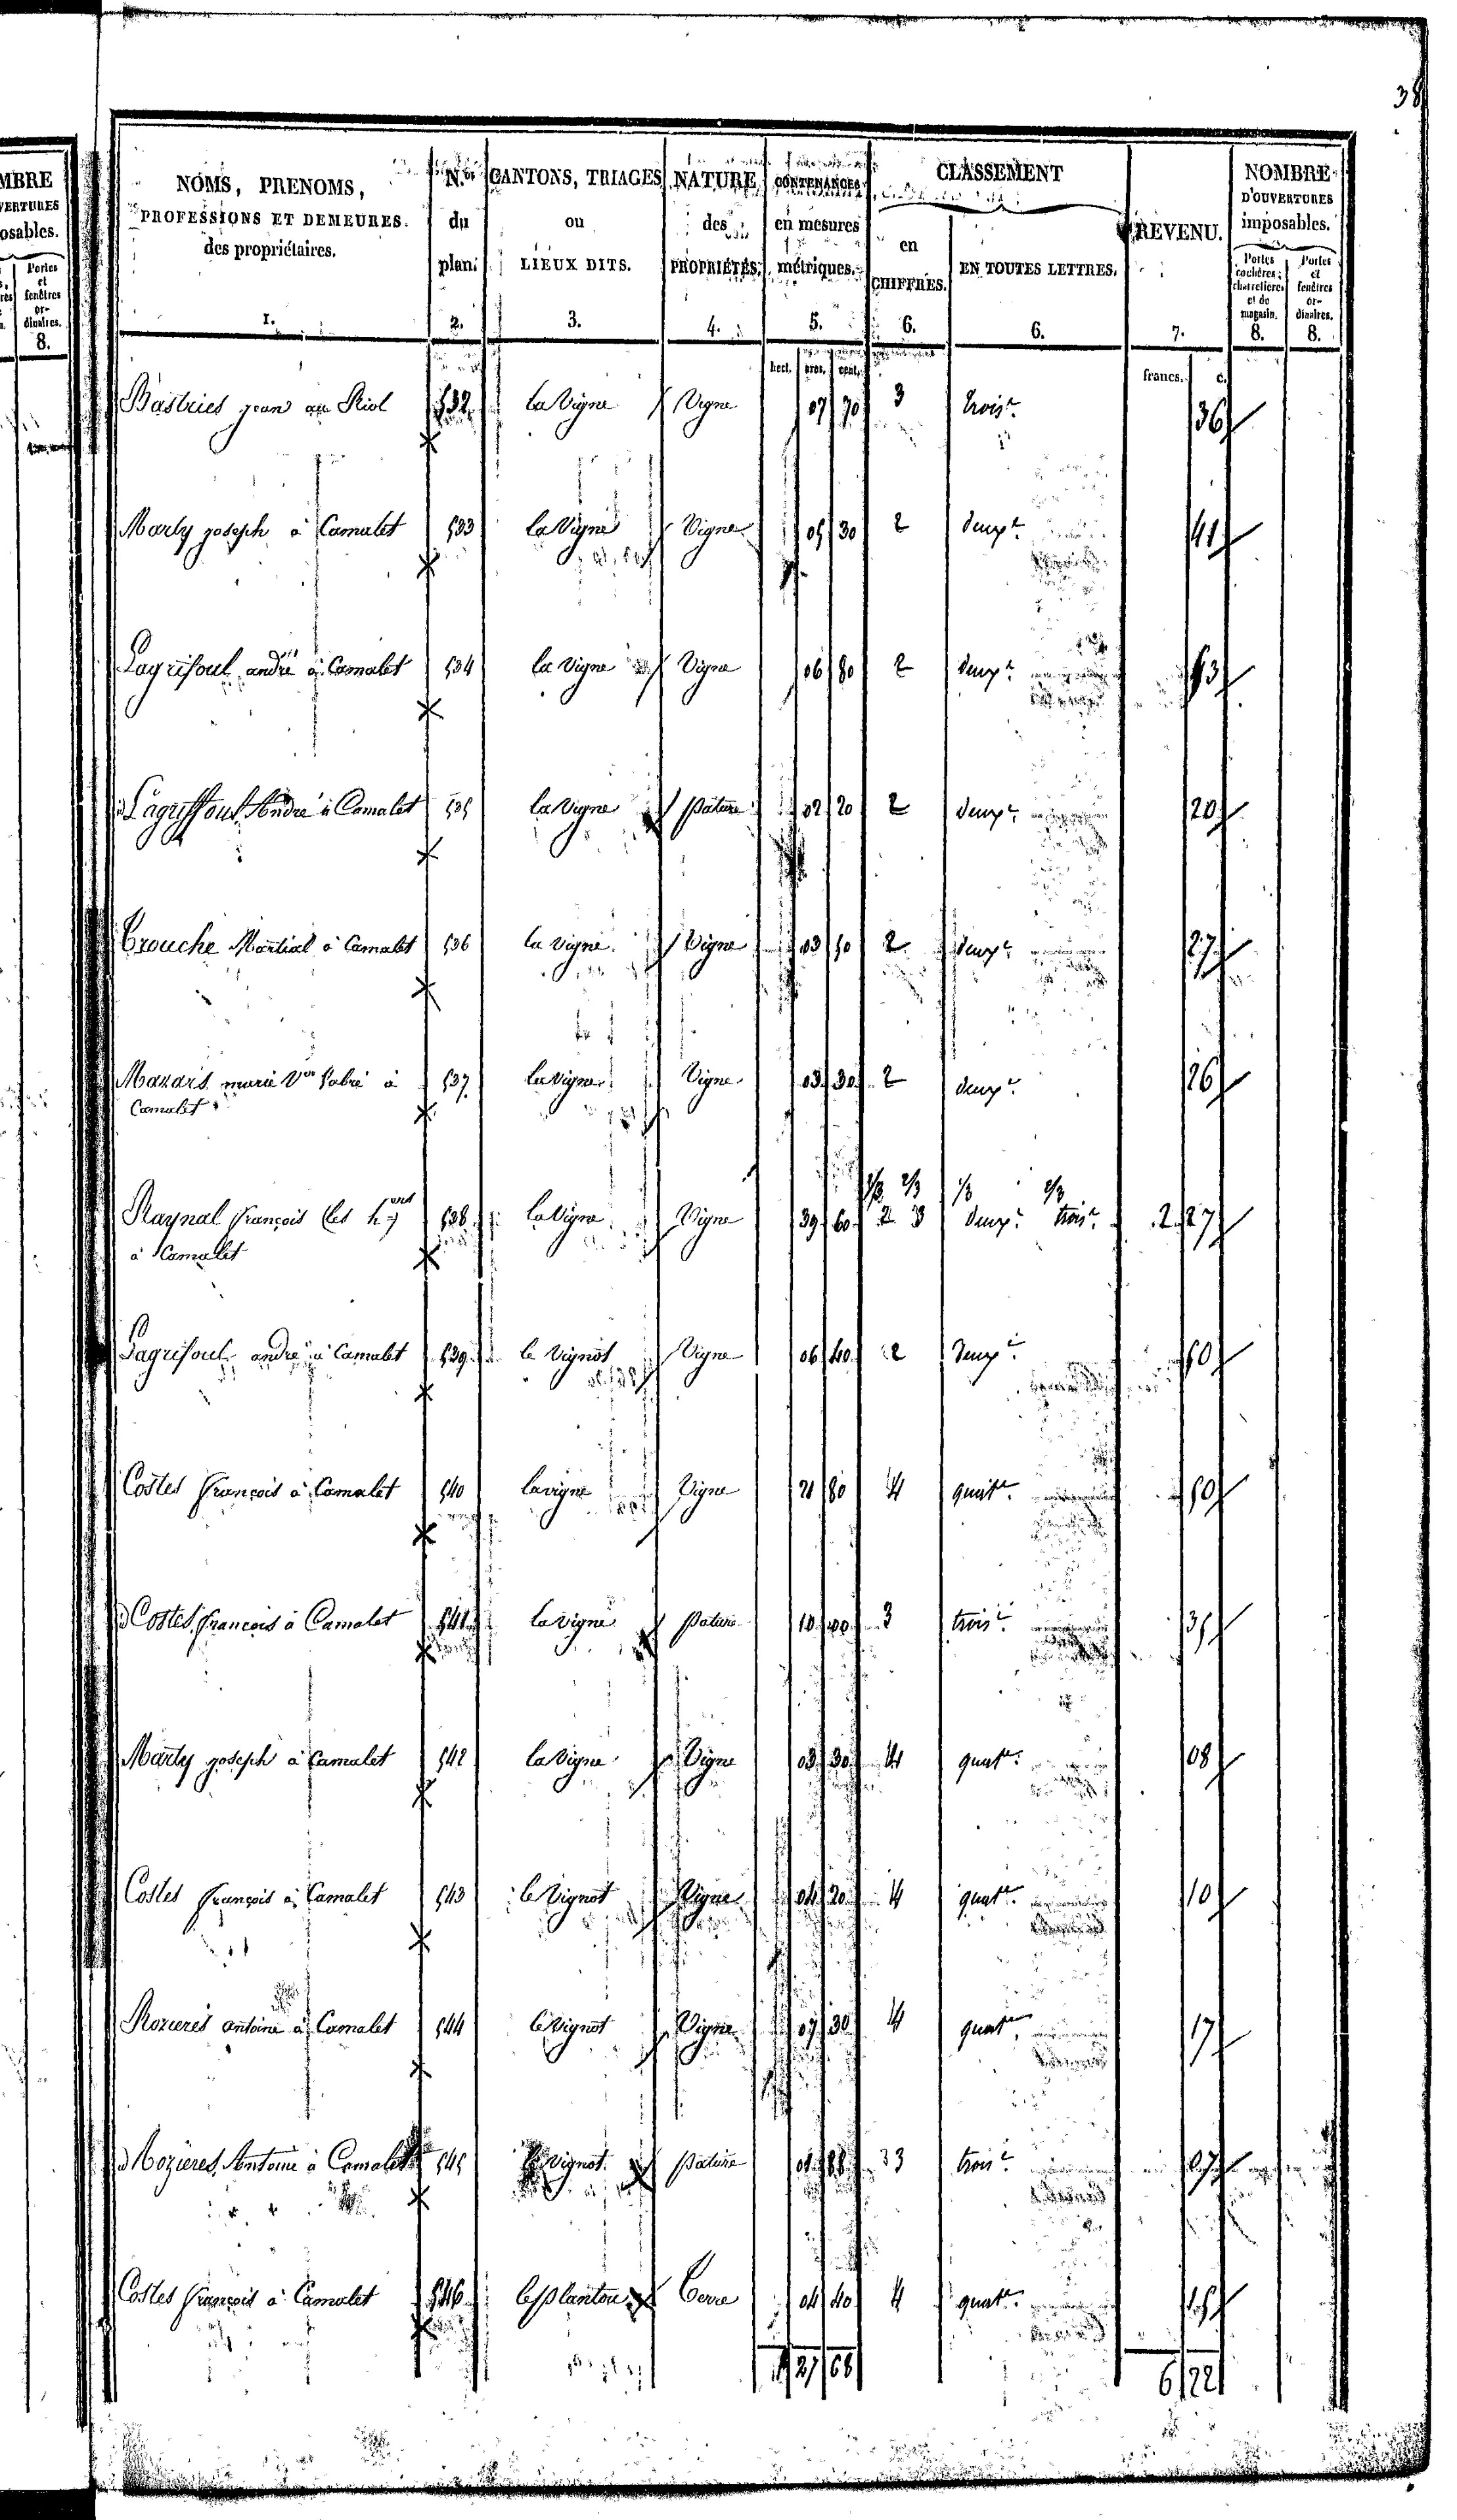 38
MBRE
VERTURES
osables.
Portes
et
fenêtres
or-
dinaires.
8.
NOMS, PRENOMS,
PROFESSIONS ET DEMEURES.
des propriétaires.
1.
N.os
du
plan.
2.
CANTONS, TRIAGES
ou
LIEUX DITS.
3.
NATURE
des
PROPRIÉTÉS.
4.
CONTENANCES
en mesures
métriques.
5.
CLASSEMENT
en
CHIFFRES.
6.
EN TOUTES LETTRES.
6.
REVENU.
7.
NOMBRE
D'OUVERTURES
imposables.
Portes
cochères,
charretières
et de
magasin.
8.
Portes
et
fenêtres
or-
dinaires.
8.
hect. ares. cent.
francs. c.
Bastries jean au Riol 532 la Vigne Vigne 07 70 3 troise 36
Marty joseph à Camalet 533 la Vigne Vigne 05 30 2 deuxe 41
Lagrifoul andré à Camalet 534 la Vigne Vigne 06 80 2 deuxe 53
d Lagriffoul André à Camalet 535 la Vigne pature 02 20 2 deuxe 20
Crouche Martial à Camalet 536 la Vigne Vigne 03 50 2 deuxe 27
Mazars marie Vve fabré à 537 la Vigne Vigne 03 30 2 deuxe 26
Camalet
1/3 2/3 1/3 2/3
Raynal françois (les h.) 538 la Vigne Vigne 39 60 2 3 deuxe troise 2 27
à Camalet
Lagrifoul andré à Camalet 539 le Vignot Vigne 06 40 2 deuxe 50
Costes françois à Camalet 540 la vigne Vigne 21 80 4 quate 50
d Costes françois à Camalet 541 la vigne pature 10 3 troise 35
Marty joseph à Camalet 542 la Vigne Vigne 03 30 4 quate 08
Costes françois à Camalet 543 le Vignot Vigne 04 20 4 quate 10
Rozieres antoine à Camalet 544 le Vignot Vigne 07 30 4 quate 17
d Rozieres Antoine à Camalet 545 le Vignot pature 3 troise 07
Costes françois à Camalet 546 les plantou Terre 04 40 4 quate 15
1 27 68
6 22